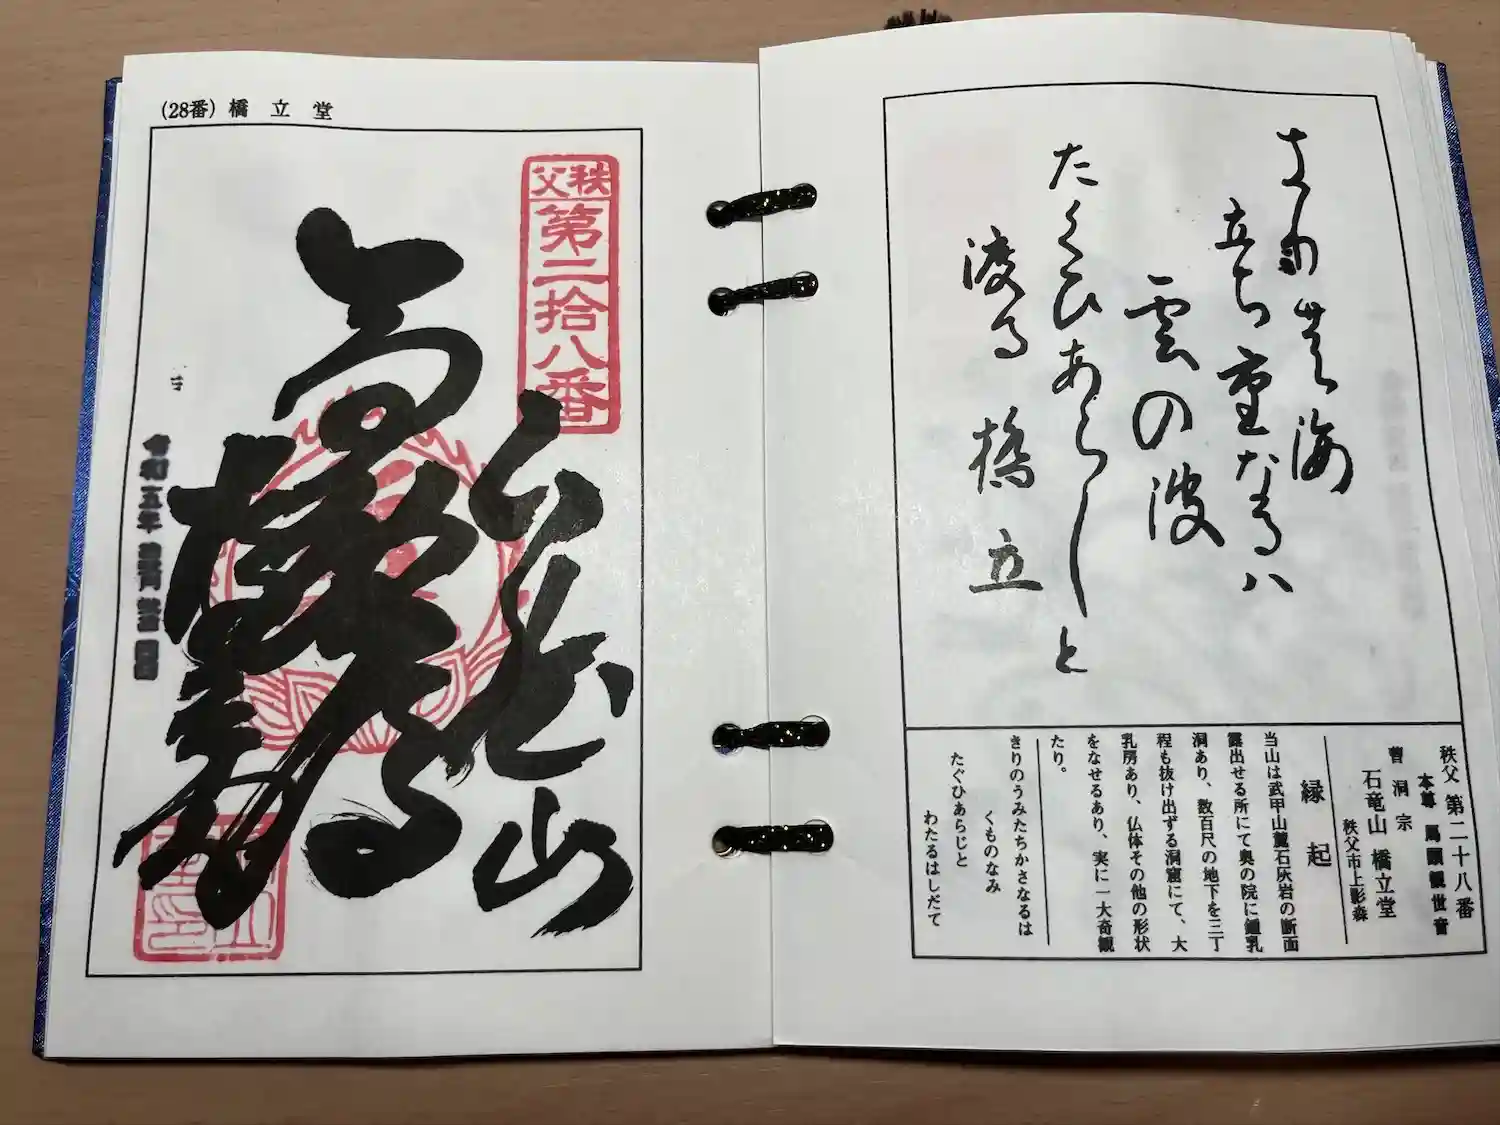 秩父 第二十八番
本尊 馬頭観世音
曹洞宗
石竜山 橋立堂
秩父市上影森
縁起
当山は武甲山麓石灰岩の断面
露出せる所にて奥の院に鍾乳
洞あり、数百尺の地下を三丁
程も抜け出ずる洞窟にて、大
乳房あり、仏体その他の形状
をなせるあり、実に一大奇観
たり。
きりのうみたちかさなるは
くものなみ
たぐひあらじと
わたるはしだて
海
立ち重なるハ
雲の波
たくひあらしと
渡る橋立
(28番) 橋立堂
秩父
第二拾八番
山
令和五年